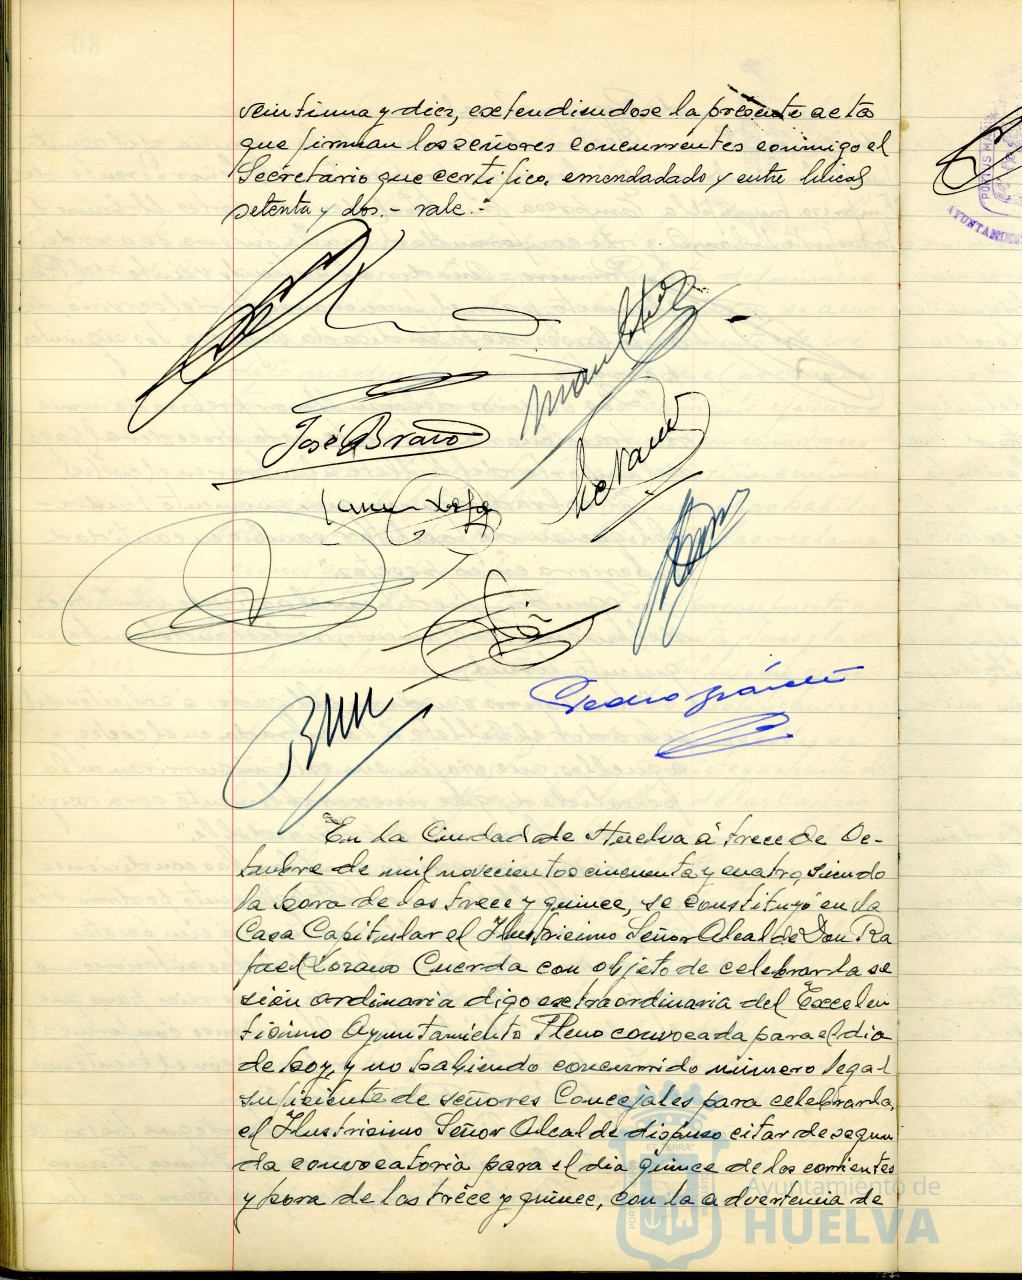 veintiuna y diez, extendiendose la presente acta
que firman los señores concurrentes conmigo el
Secretario que certifico. emendadado y entre lineas
setenta y dos.- vale.-
José Bravo
Pedro
En la Ciudad de Huelva a trece de Oc-
tubre de mil novecientos cincuenta y cuatro, siendo
la hora de las trece y quince, se constituyó en la
Casa Capitular el Ilustrisimo Señor Alcalde Don Ra
fael Lozano Cuerda con objeto de celebrar la se
sión ordinaria digo extraordinaria del Excelen
tisimo Ayuntamiento Pleno convocada para el dia
de hoy, y no habiendo concurrido número legal
suficiente de señores Concejales para celebrarla,
el Ilustrisimo Señor Alcalde dispuso citar de segun
da convocatoria para el dia quince de los corrientes
y hora de las trece y quince, con la advertencia de
Ayuntamiento de
HUELVA